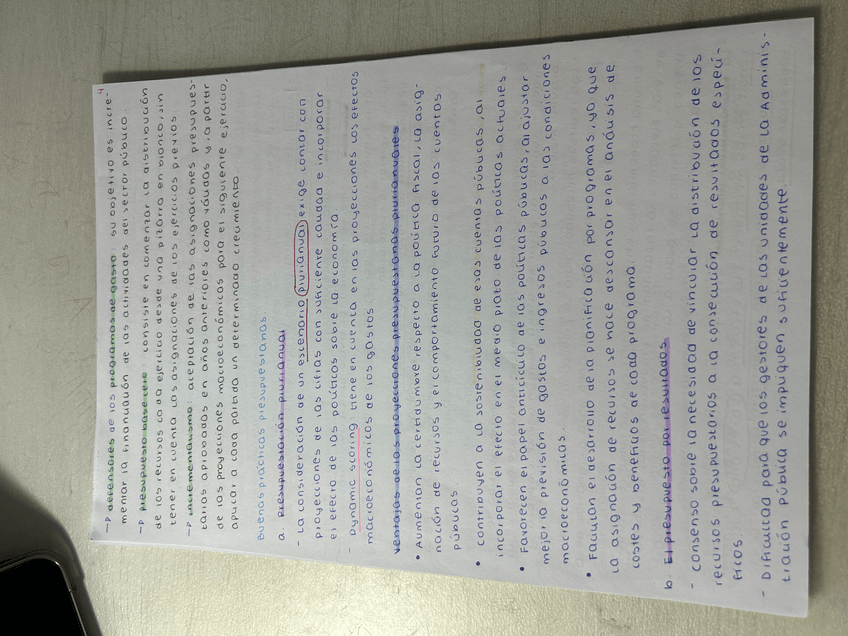 4
→ defensores de los programas de gasto: su objetivo es incre-
mentar la financiación de las actividades del sector público.
→ presupuesto base cero: consiste en comenzar la distribución
de los recursos cada ejercicio desde una pizarra en blanco, sin
tener en cuenta las asignaciones de los ejercicios previos.
→ incrementalismo: aceptación de las asignaciones presupues-
tarias aprobadas en años anteriores como válidas y, a partir
de las proyecciones macroeconómicas para el siguiente ejercicio,
aplicar a cada partida un determinado crecimiento
Buenas prácticas presupuestarias
a. Presupuestación plurianual
- La consideración de un escenario plurianual exige contar con
proyecciones de las cifras con suficiente calidad e incorporar
el efecto de las políticas sobre la economía.
- Dynamic scoring tiene en cuenta en las proyecciones los efectos
macroeconómicos de los gastos
Ventajas de las proyecciones presupuestarias plurianuales
• Aumentan la certidumbre respecto a la política fiscal, la asig-
nación de recursos y el comportamiento futuro de las cuentas
públicas
• Contribuyen a la sostenibilidad de esas cuentas públicas, al
incorporar el efecto en el medio plazo de las políticas actuales.
• Favorecen el papel anticíclico de las políticas públicas, al ajustar
mejor la previsión de gastos e ingresos públicos a las condiciones
macroeconómicas.
• Facilitan el desarrollo de la planificación por programas, ya que
la asignación de recursos se hace descansar en el análisis de
costes y beneficios de cada programa.
b. El presupuesto por resultados
- Consenso sobre la necesidad de vincular la distribución de los
recursos presupuestarios a la consecución de resultados especí-
ficos
- Dificultad para que los gestores de las unidades de la Adminis-
tración Pública se impliquen suficientemente.